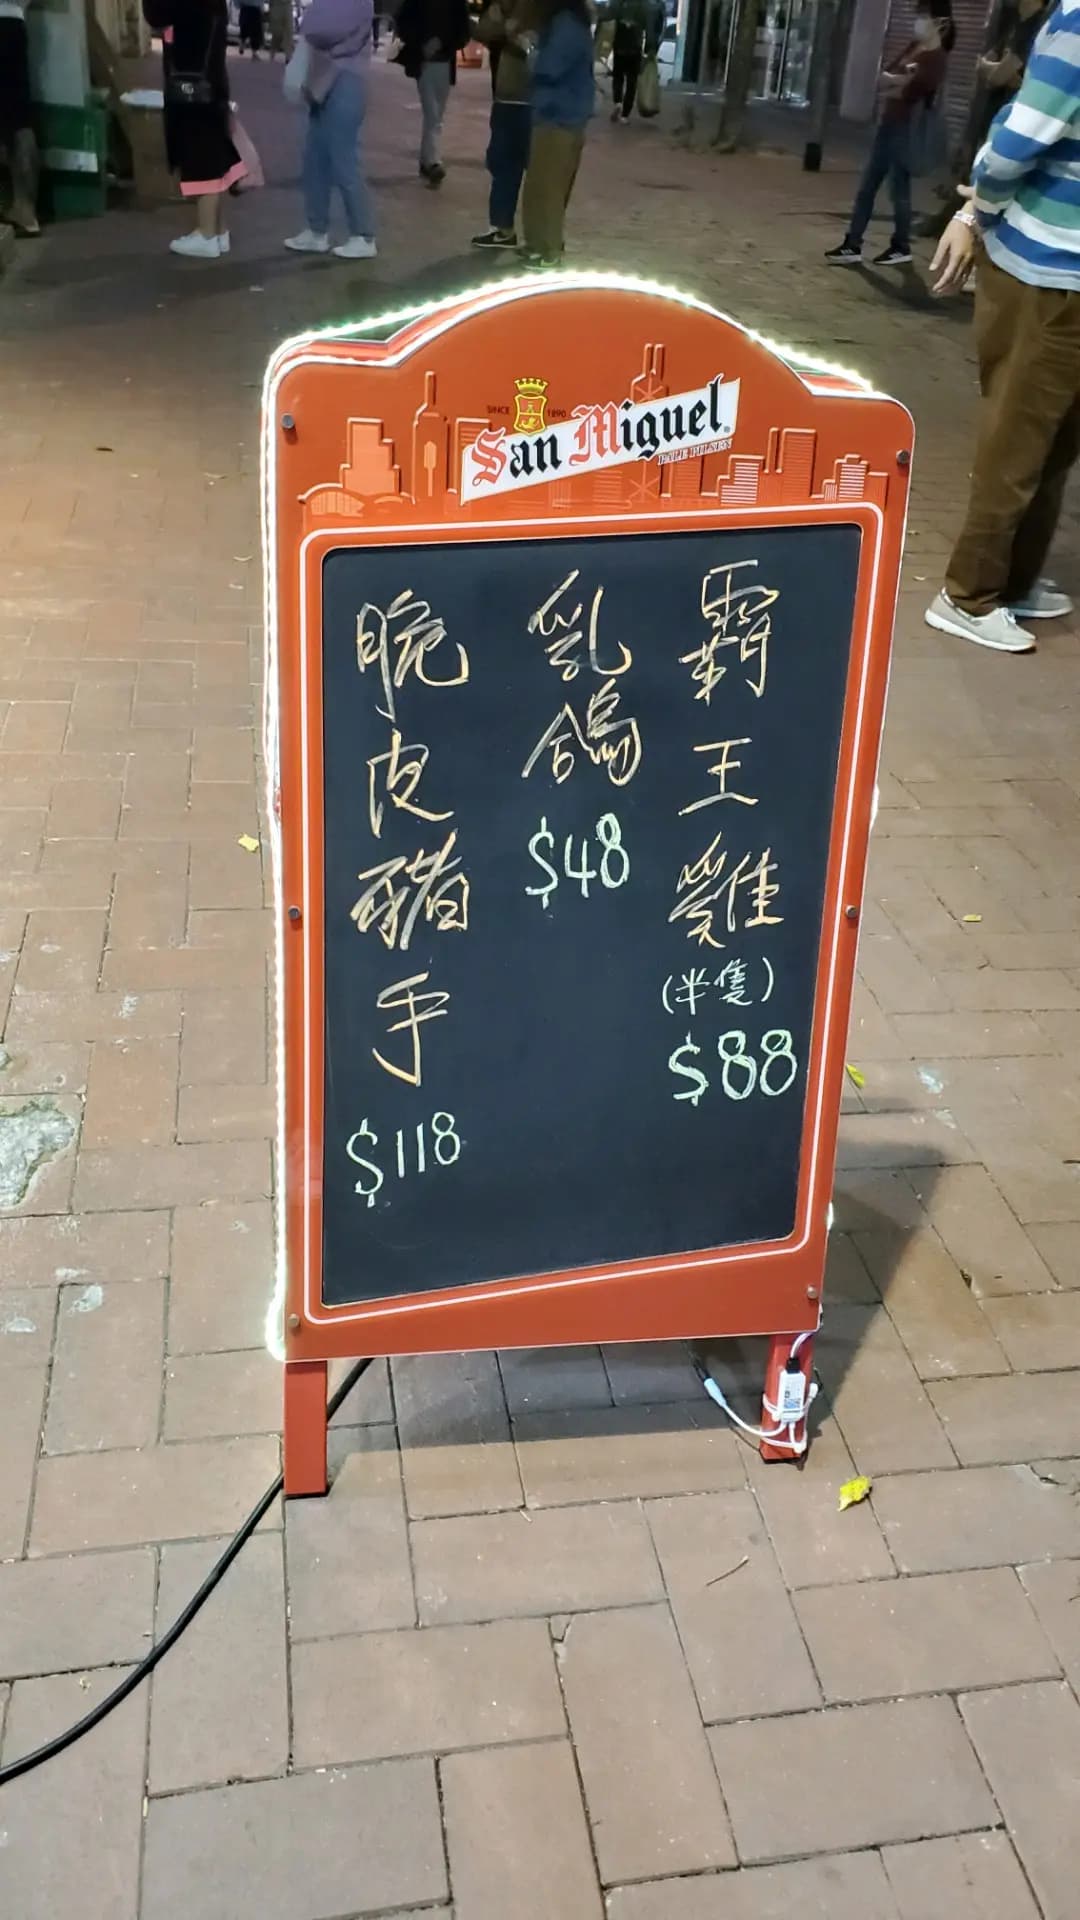 SINCE 1890
San Miguel
PALE PILSEN
霸王雞
(半隻)
$88
乳鴿
$48
脆皮豬手
$118